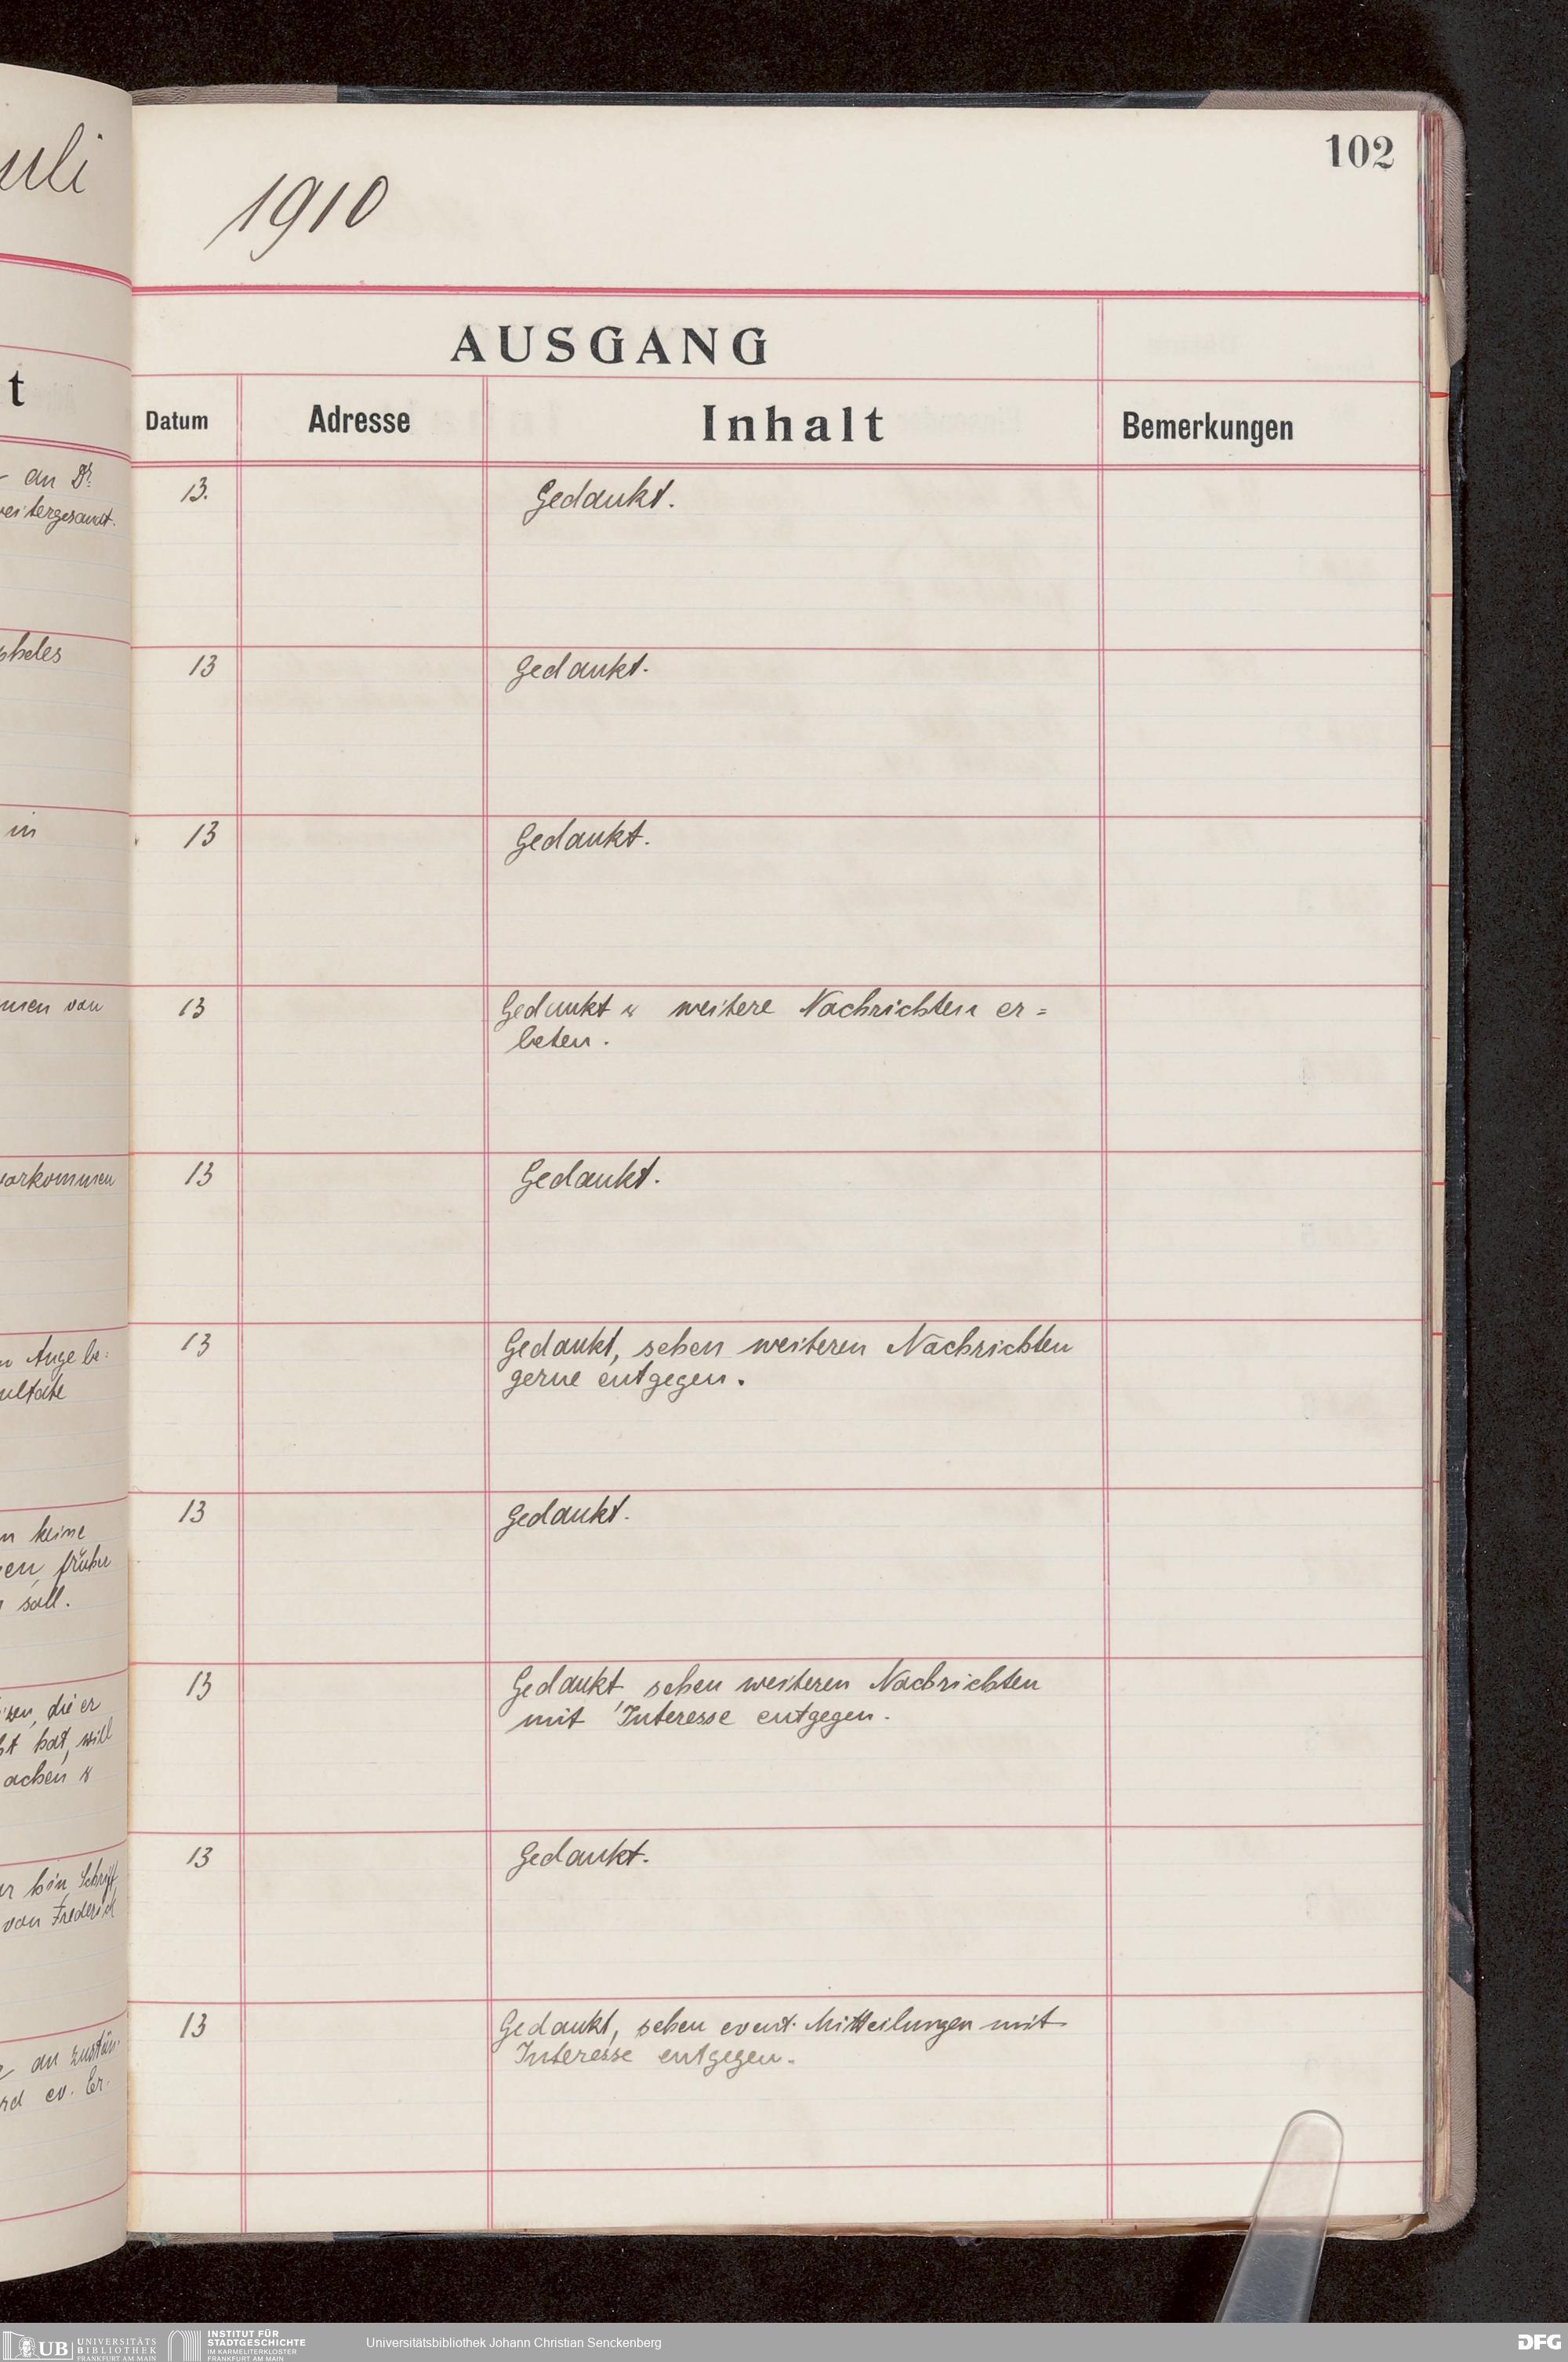 uli
t
an Dr.
weitergesandt.
in
von
vorkommen
keine
früher
soll.
die er
hat, will
von Frederick
an
ev. Er
102
1910
AUSGANG
Datum Adresse Inhalt Bemerkungen
13. Gedankt.
13 Gedankt.
13 Gedankt.
13 Gedankt & weitere Nachrichten er=
beten.
13 Gedankt.
13 Gedankt, sehen weiteren Nachrichten
gerne entgegen.
13 Gedankt.
13 Gedankt, sehen weiteren Nachrichten
mit Interesse entgegen.
13 Gedankt.
13 Gedankt, sehen event. Mitteilungen mit
Interesse entgegen.
UB UNIVERSITÄTS
BIBLIOTHEK
FRANKFURT AM MAIN
INSTITUT FÜR
STADTGESCHICHTE
IM KARMELITERKLOSTER
FRANKFURT AM MAIN
Universitätsbibliothek Johann Christian Senckenberg
DFG